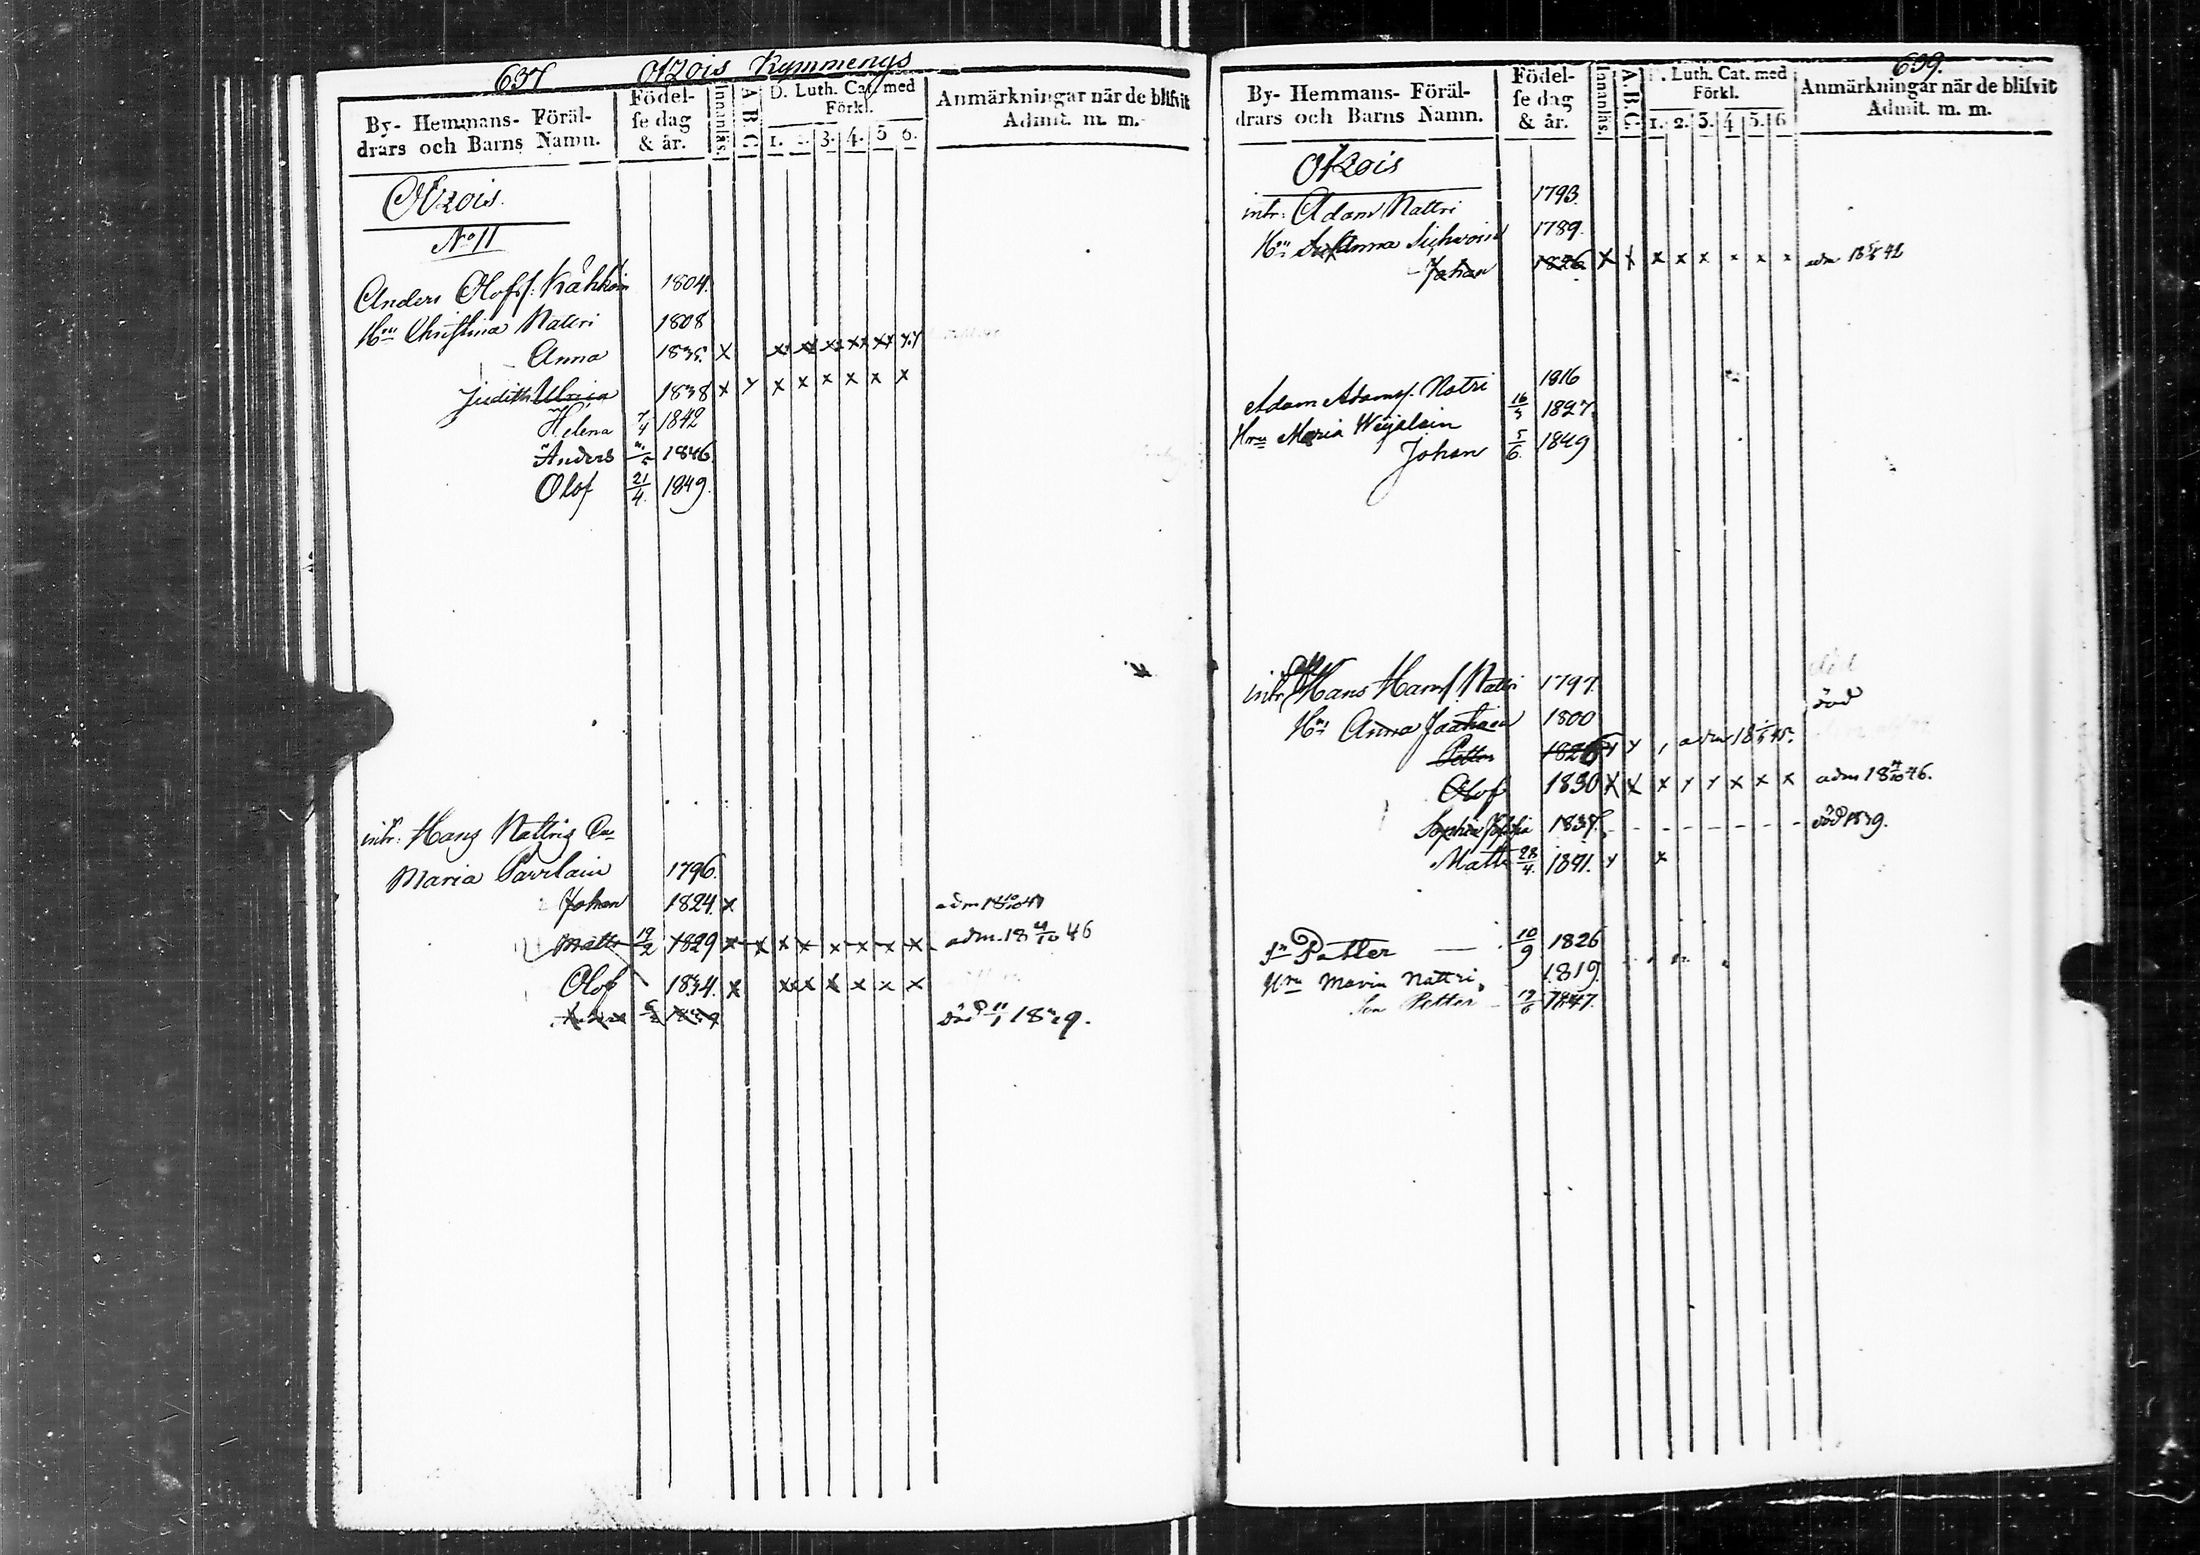 637 Otzois Kymmengs
By- Hemmans- Föräl-
drars och Barns Namn.
Födel-
se dag
& år.
Innanläs.
A B C
D. Luth. Cat. med
Förkl.
1. 2. 3. 4. 5 6.
Anmärkningar när de blifvit
Admit. m. m.
Otzois.
No 11
Anders Olofss: Kähkön 1804.
Hru Christina Nattri 1808
Anna 1835. x
Judith Ulrica 1838 x y x x x x x x
Helena 7/4 1842
Anders 1846
Olof 21/4. 1849.
intr: Hans Nattris
Maria Pavilain 1796.
Johan 1824. x
Matts 19/2 1829 x x x x x x x x adm. 18 4/10 46
Olof 1834. x
död 1829.
639.
By- Hemmans- Föräl-
drars och Barns Namn.
Födel-
se dag
& år.
Innanläs.
A.B.C.
D. Luth. Cat. med
Förkl.
1. 2. 3. 4 5. 6
Anmärkningar när de blifvit
Admit. m. m.
Otzois
intr: Adam Nattri 1793.
Hru Anna 1789.
Johan 1826 x x x x x x x x
Adam Adamss. Natri 1816
Hru Maria Weijalain 16/3 1827
Johan 5/6. 1849
intr Hans Hanss. Nattri 1797. död
Hru Anna 1800
Petter 1826
Olof 1830 x x x y y x x x adm 18 4/10 46.
Sophia 1837. död 1839.
Matts 28/4. 1841. y x
Sn Petter 10/9 1826
Hru Maria Nattri 1819.
Son Petter 19/6 1847.